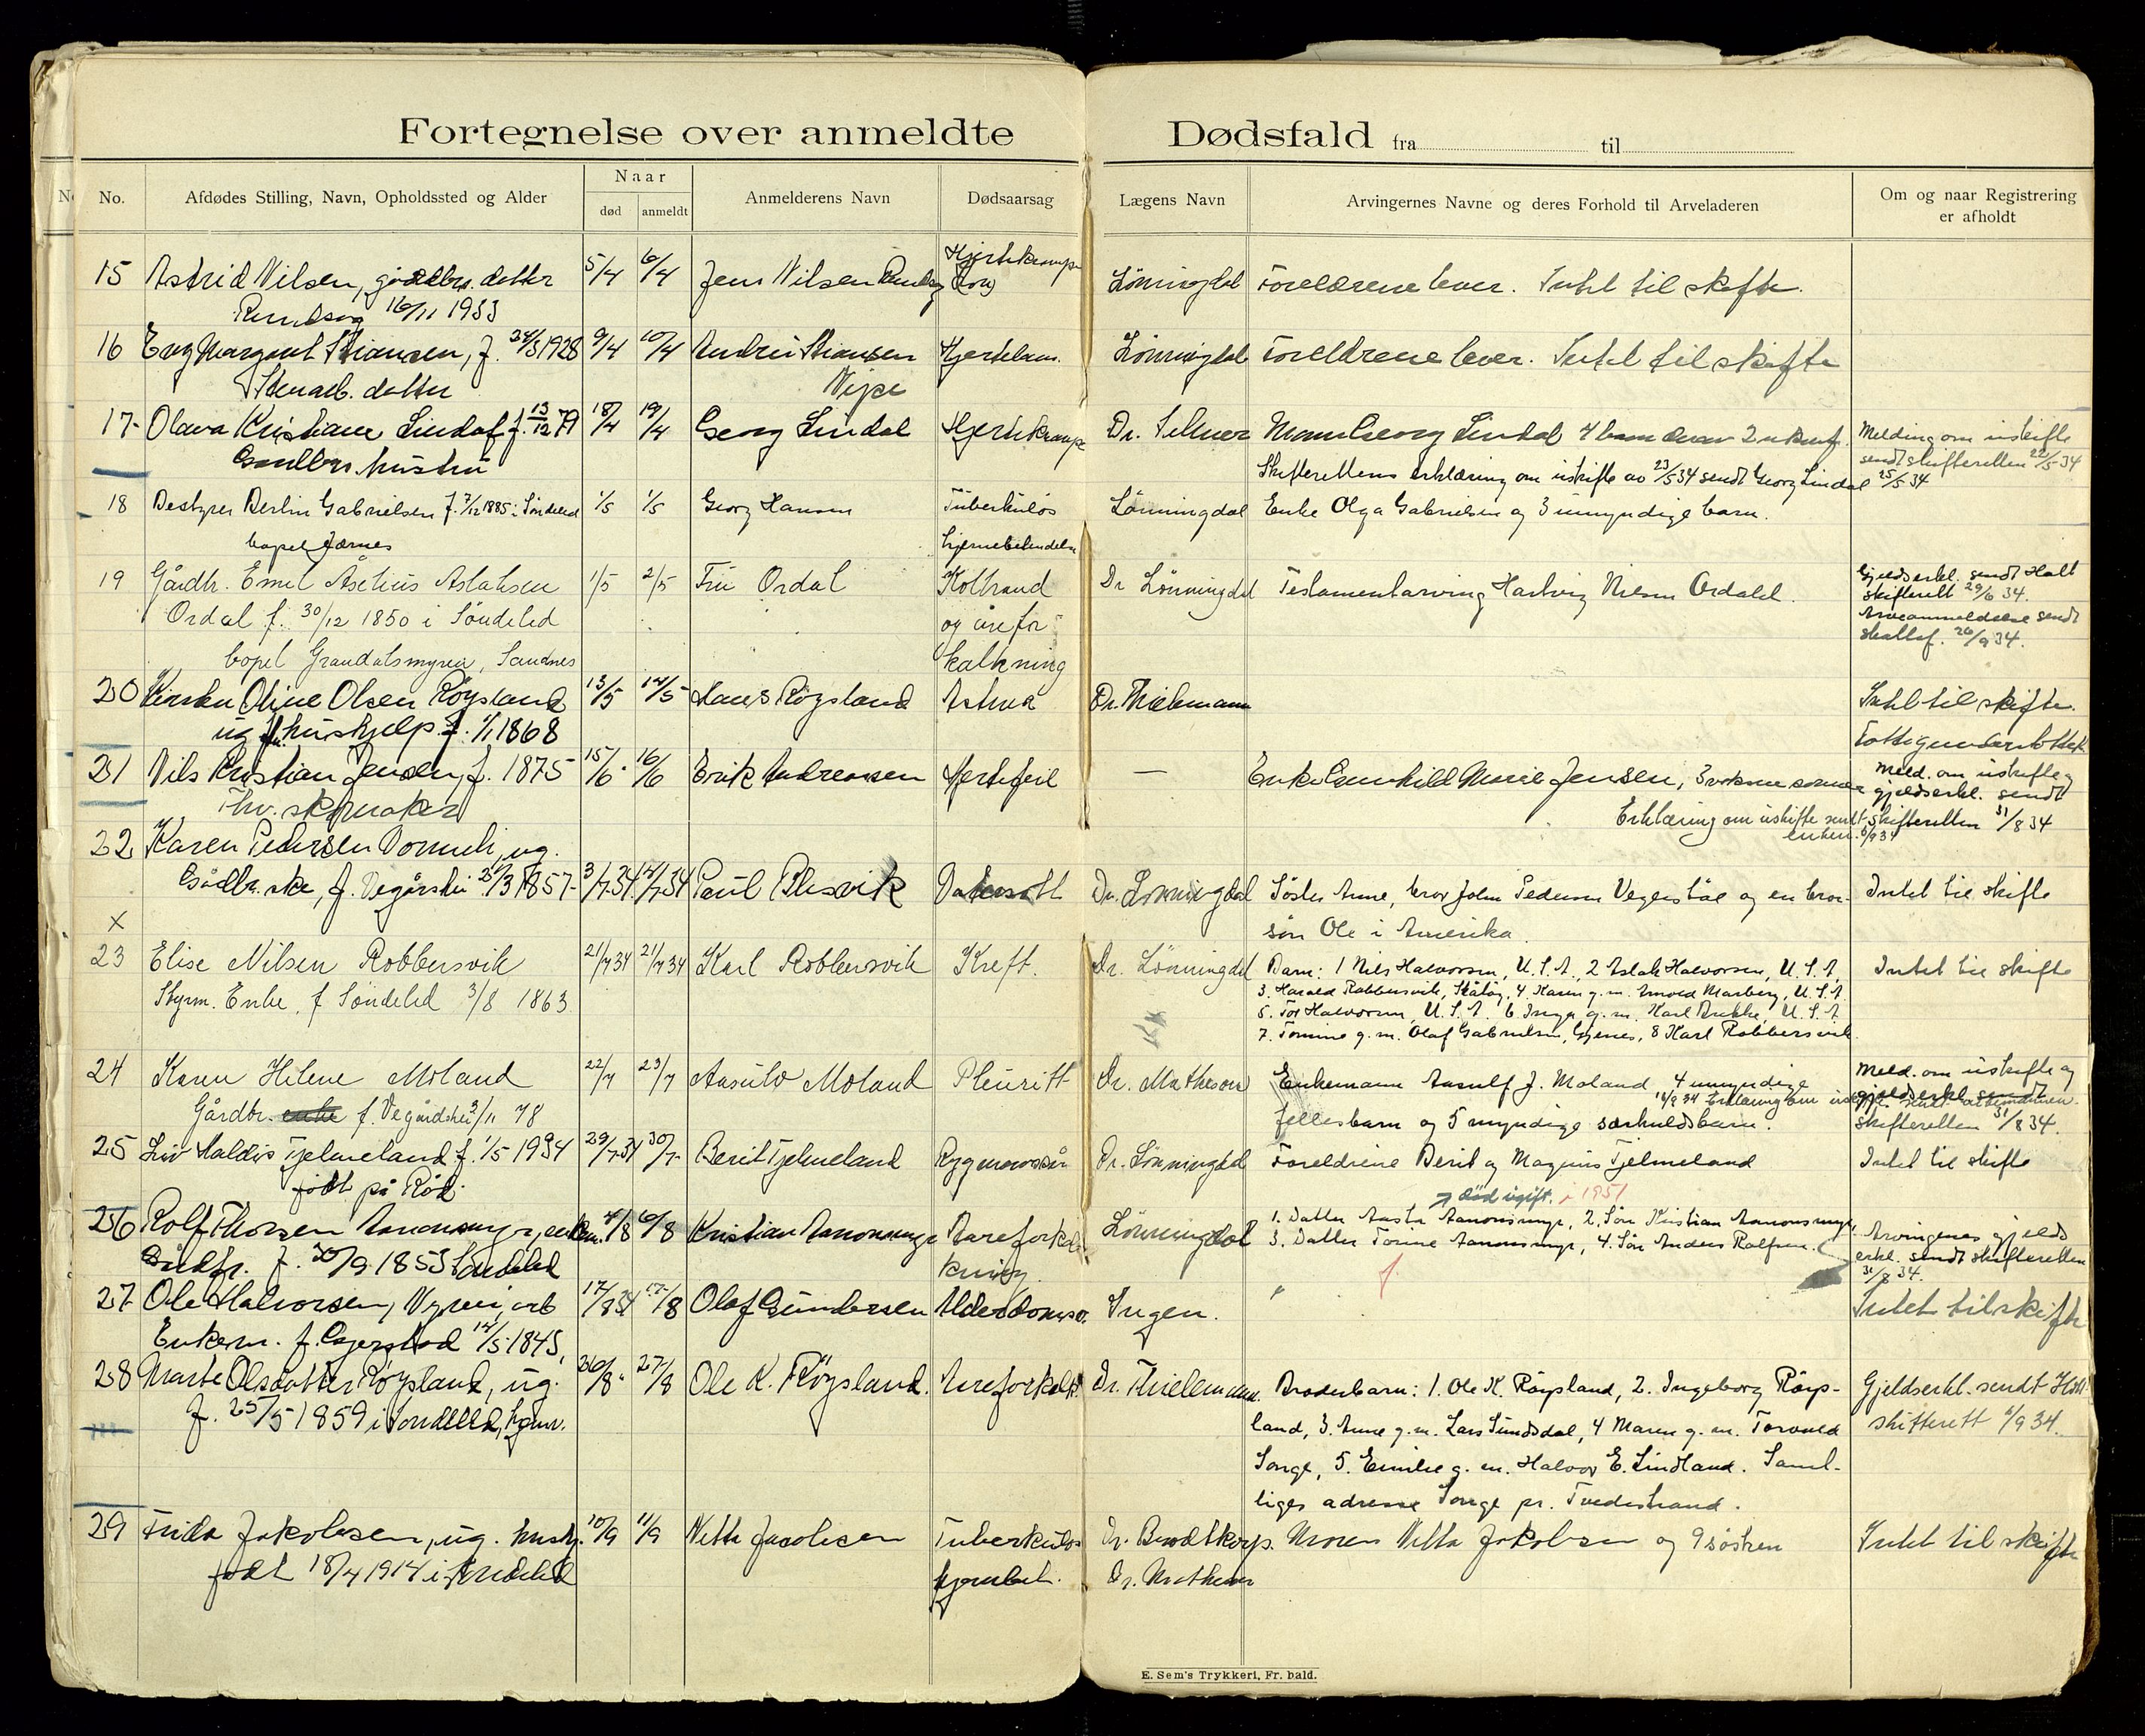 Fortegnelse over anmeldte Dødsfald fra til
No. Afdødes Stilling, Navn, Opholdssted og Alder Naar død anmeldt Anmelderens Navn Dødsaarsag Lægens Navn Arvingernes Navne og deres Forhold til Arveladeren Om og naar Registrering er afholdt
15 Astrid Nilsen, gårdbr. datter 5/4 6/4 Jens Nilsen Hjertekrampe Lönningdal Foreldrene lever. Intet til skifte.
16/11 1933
16 Margaret Stiansen, f. 24/3 1928 9/4 10/4 Stiansen Lönningdal Foreldrene lever. Intet til skifte
datter
17 Olava Kristiane Lindal f. 13/12 79 18/4 19/4 Georg Lindal Hjertekrampe Dr. Selmer Mann Georg Lindal 4 barn Melding om uskifte
Gaardbr. hustru sendt skifteretten 22/5 34
Skifterettens erklæring om uskifte av 23/5 34 sendt Georg Lindal 25/5 34
18 Bestyrer Berlin Gabrielsen f. 7/12 1885 i Söndeled 1/5 1/5 Georg Hansen Tuberkulös Lönningdal Enke Olga Gabrielsen og 3 umyndige barn.
bopel Jernes hjernebetendelse
19 Gårdbr. Emil Aslaksen 1/5 2/5 Fru Ordal Kolbrand Dr Lönningdal Testamentarving Hartvig Nilsen Ordal. Gjeldserkl. sendt Holt
skifterett 29/6 34.
Ordal f. 30/12 1850 i Söndeled og årefor- Arveanmeldelse sendt
skattef. 26/9 34.
bopel Grandalsmyren, Sandnes kalkning
20 Oline Olsen Röysland 13/5 14/5 Hans Röysland Astma Dr. Thielemann Intet til skifte.
ug. hushjelp f. 1/1 1868 Fattigunderstöttet
21 Nils Kristian Jensen, f. 1875 15/6 16/6 Erik Andreassen Hjertefeil — Enke Gunhild Marie Jensen, 3 voksne sönner Meld. om uskifte og
gjeldserkl. sendt
fhv. skomaker Erklæring om uskifte sendt skifteretten 31/8 34
enken 6/9 34
22 Karen Pedersen ug.
f. Vegårshei 1857 3/7 34 4/7 34 Paul Blesvik Dr. Lönningdal Söster Anne, bror John Pedersen og en bror- Intet til skifte
sön Ole i Amerika.
x
23 Elise Nilsen Robbersvik 21/7 34 21/7 34 Karl Robbersvik Kreft. Dr. Lönningdal Barn: 1 Nils Halvorsen, U.S.A., 2 Aslak Halvorsen, U.S.A., Intet til skifte
Styrm. Enke, f Söndeled 3/8 1863 3. Harald Robbersvik, Skåtöy, 4. Karen g.m. Arnold Marberg, U.S.A.
5. Tor Halvorsen, U.S.A. 6 Inga g.m. Karl Bakke, U.S.A.
7. Tomine g.m. Olaf Gabrielsen, Gjenes, 8 Karl Robbersvik
24 Karen Helene Moland 22/7 23/7 Aasulv Moland Pleuritt Dr. Matheson Enkemann Aasulf J. Moland, 4 umyndige Meld. om uskifte og
Gårdbr. enke f. Vegårdshei 3/11 78 fellesbarn og 5 myndige særkuldsbarn. gjeldserkl. sendt
skifteretten 31/8 34.
25 Liv Haldis Tjelmeland f. 1/5 1934 29/7 34 30/7 Berit Tjelmeland Dr. Lönningdal Foreldrene Berit og Magnus Tjelmeland Intet til skifte
födt på Röd.
död ugift. i 1951
26 Rolf Thorsen Aanonsmyr, enkem. 4/8 6/8 Kristian Aanonsmyr Aareforkal- Lönningdal 1. Datter Aasta Aanonsmyr, 2. Sön Kristian Aanonsmyr, Arvingenes gjelds
Gårdbr. f. 30/9 1853 Söndeled kning. 3. Datter Torine Aanonsmyr, 4. Sön Anders Rolfsen. erkl. sendt skifteretten
31/8 34.
27 Ole Halvorsen, arb 17/8 34 17/8 Olaf Gundersen Alderdomsv. Ingen. Intet til skifte
Enkem. f. Gjerstad 14/5 1845,
28 Marte Olsdatter Röysland, ug. 26/8 27/8 Ole K. Röysland. Areforkalk. Dr. Thielemann. Broderbarn: 1. Ole K. Röysland, 2. Ingeborg Röys- Gjeldserkl. sendt Holt
f. 25/5 1859 i Söndeled, land, 3. Anne g.m. Lars Sundsdal, 4 Maren g.m. Torvald skifterett 6/9 34.
Songe, 5. Emilie g.m. Halvor E. Lindland. Saml-
liges adresse Songe pr. Tvedestrand.
29 Frida Jakobsen, ug. hush. 10/9 11/9 Netta Jacobsen Tuberkulös Dr. Brodtkorp. Moren Netta Jakobsen og 9 sösken Intet til skifte
födt 18/4 1914 i Söndeled hjernebet. Dr. Matheson
E. Sem's Trykkeri, Fr. hald.